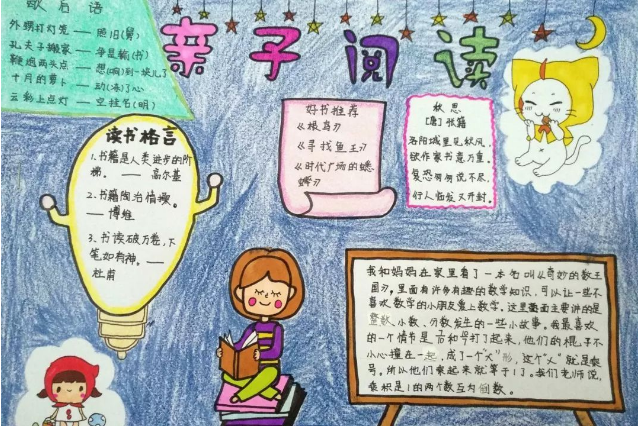 歇后语
外甥打灯笼——照旧(舅)
孔夫子搬家——净是输(书)
鞭炮两头点——想(响)到一块儿了
十月的萝卜——动(冻)了心
云彩上点灯——空挂名(明)
亲子阅读
读书格言
1.书籍是人类进步的阶
梯。——高尔基
2.书籍陶冶情操。
——博维
3、书读破万卷,下
笔如有神。——
杜甫
好书推荐
《根鸟》
《寻找鱼王》
《时代广场的蟋
蟀》
秋思
[唐]张籍
洛阳城里见秋风,
欲作家书意万重。
复恐匆匆说不尽,
行人临发又开封。
我和妈妈在家里看了一本书叫《奇妙的数王
国》。里面有许多有趣的数学知识,可以让一些不
喜欢数学的小朋友爱上数学。这里面主要讲的是
整数、小数、分数发生的一些小故事。我最喜欢
的一个情节是
打了起来,他们的棍子不
小心撞在一起,成了一个"×"形,这个"×"就是乘
号。所以他们乘起来就等于1了。我们老师说,
乘积是1的两个数互为倒数。